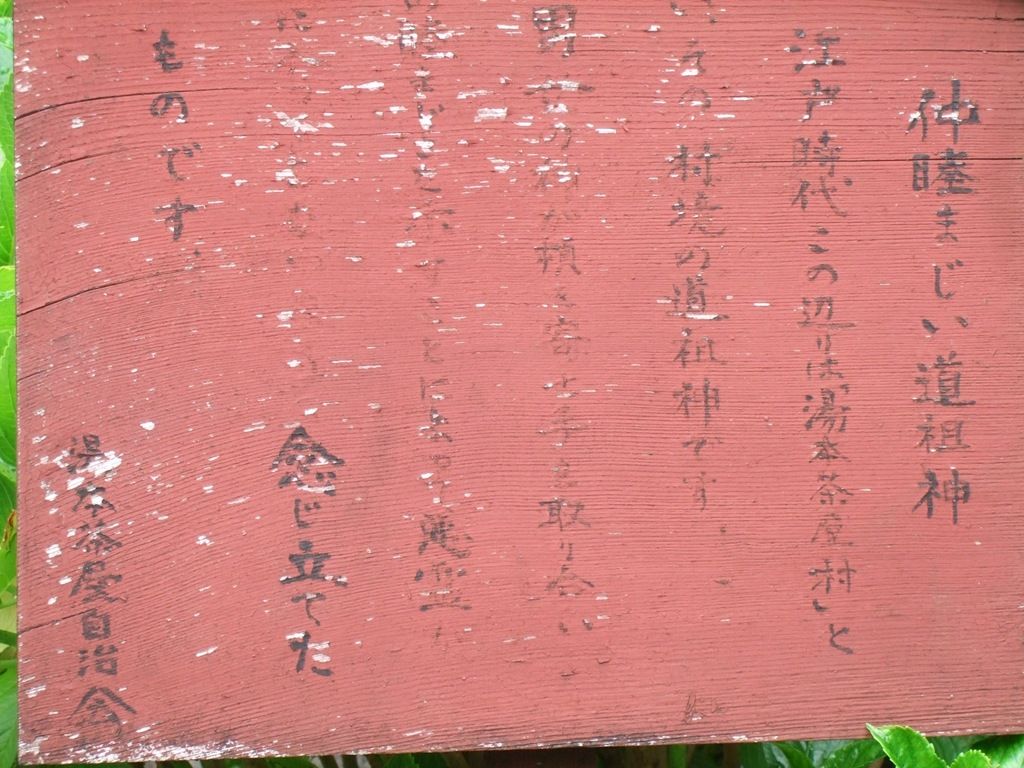 仲睦まじい道祖神
江戸時代この辺りは「湯本茶屋村」と
い その村境の道祖神です
男女の神が頬を寄せ手を取り合い
仲睦まじさを示すことによって悪霊
念じ立てた
ものです。
湯本茶屋自治会